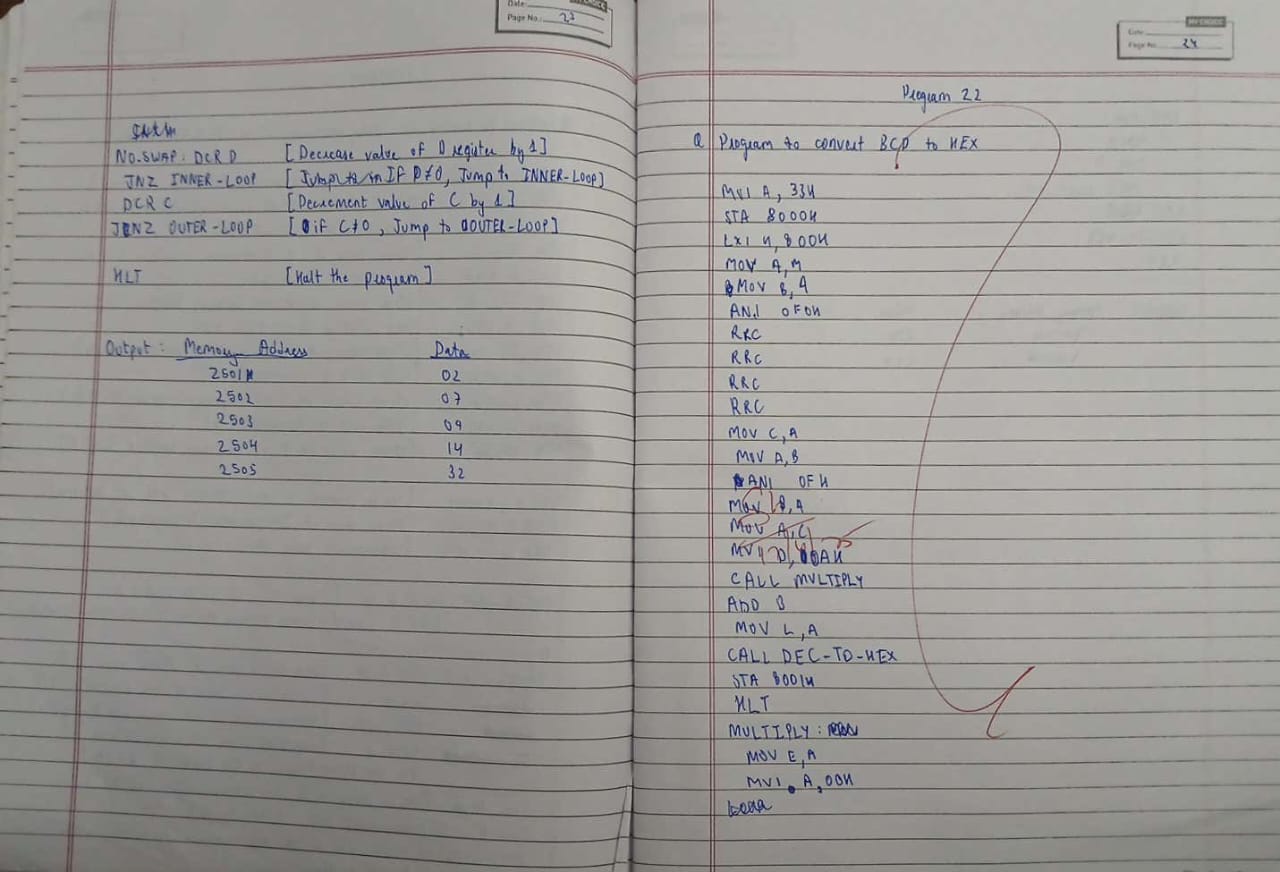 Date:
Page No.: 23
NO-SWAP: DCR D [Decrease value of D register by 1]
JNZ INNER-LOOP [If D≠0, Jump to INNER-LOOP]
DCR C [Decrement value of C by 1]
JNZ OUTER-LOOP [if C≠0, Jump to OUTER-LOOP]
HLT [Halt the program]
Output: Memory Address Data
2501H 02
2502 07
2503 09
2504 14
2505 32
MY CHOICE
Date:
Page No. 24
Program 22
Q Program to convert BCD to HEX
MVI A, 33H
STA 8000H
LXI H, 800H
MOV A, M
MOV B, A
ANI 0F0H
RRC
RRC
RRC
RRC
MOV C, A
MOV A, B
ANI 0FH
MOV B, A
MOV A, C
MVI D, 0AH
CALL MULTIPLY
ADD B
MOV L, A
CALL DEC-TO-HEX
STA 8001H
HLT
MULTIPLY:
MOV E, A
MVI A, 00H